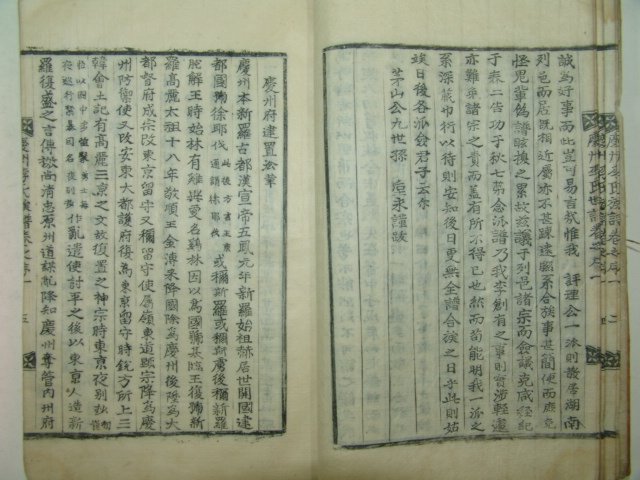 誠爲好事而此豈可易言哉惟我 評理公一派則散居湖南
列邑而居旣相近屬亦不甚踈遠照系合族事甚簡便而鹿竟
恠鬼輩僞譜眩換之累故玆議于列邑諸宗而僉議克咸經紀
于春二告功于秋七營念派譜乃我李創有之事則實涉輕遽
亦難垂諸宗之責而蓋有所不得已也然而苟能明我一派之
系深藏巾衍以待則安知後日更無全譜合族之日乎此則姑
竢日後各派發君子云尒
茅山公九世孫 謹跋
慶州府建置沿革
慶州本新羅古都漢宣帝五鳳元年新羅始祖赫居世開國建
都國號徐耶伐 或稱斯羅或稱斯盧後稱新羅
脫解王時始林有雞異更名鷄林因以爲國號基臨王復號新
羅高麗太祖十八年敬順王金傅來降國除爲慶州後陞爲大
都督府成宗改東京留守又稱留守使屬嶺東道顯宗降爲慶
州防禦使又改安東大都護府後爲東京留守時銳方所上三
韓會土記有高麗三京之文故復置之神宗時東京夜別抄
作亂遣使討平之後以東京人造新
羅復盛之言傳檄尚淸忠原州道謀亂降知慶州奪管內州府
慶州李氏派譜卷之序一
五